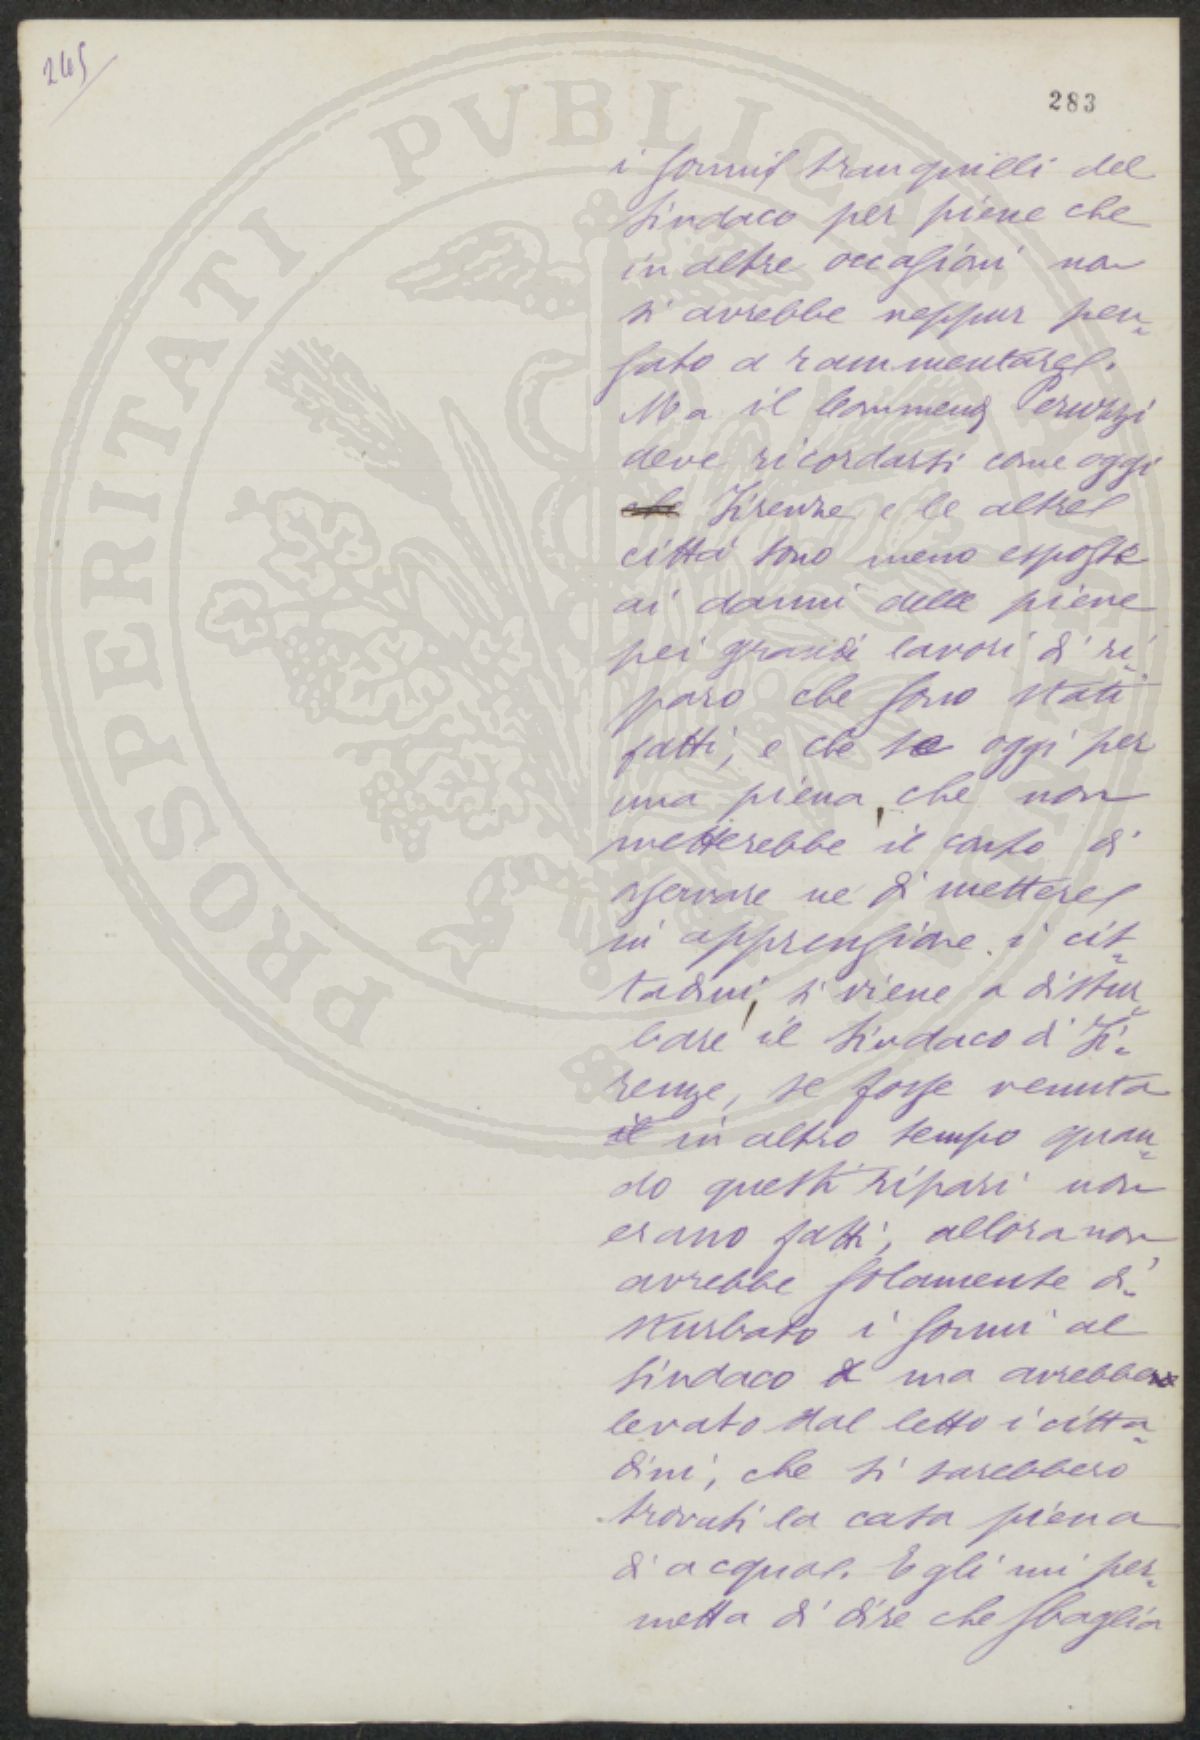 245
283
PROSPERITATI PVBLICAE
i sonni tranquilli del
Sindaco per piene che
in altre occasioni non
si avrebbe neppur pen=
sato a rammentare.
Ma il Commend Peruzzi
deve ricordarsi come oggi
che Firenze e le altre
città sono meno esposte
ai danni delle piene
pei grandi lavori di ri=
paro che sono stati
fatti, e che se oggi per
una piena, che non
metterebbe il conto di
osservare nè di mettere
in apprensione i cit=
tadini, si viene a distur=
bare il Sindaco di Fi=
renze, se fosse venuta
il in altro tempo quan=
do questi ripari non
erano fatti, allora non
avrebbe solamente di=
sturbato i sonni al
Sindaco ma avrebbe
levato dal letto i citta=
dini, che si sarebbero
trovati la casa piena
di acqua. Egli mi per=
metta di dire che sbaglia